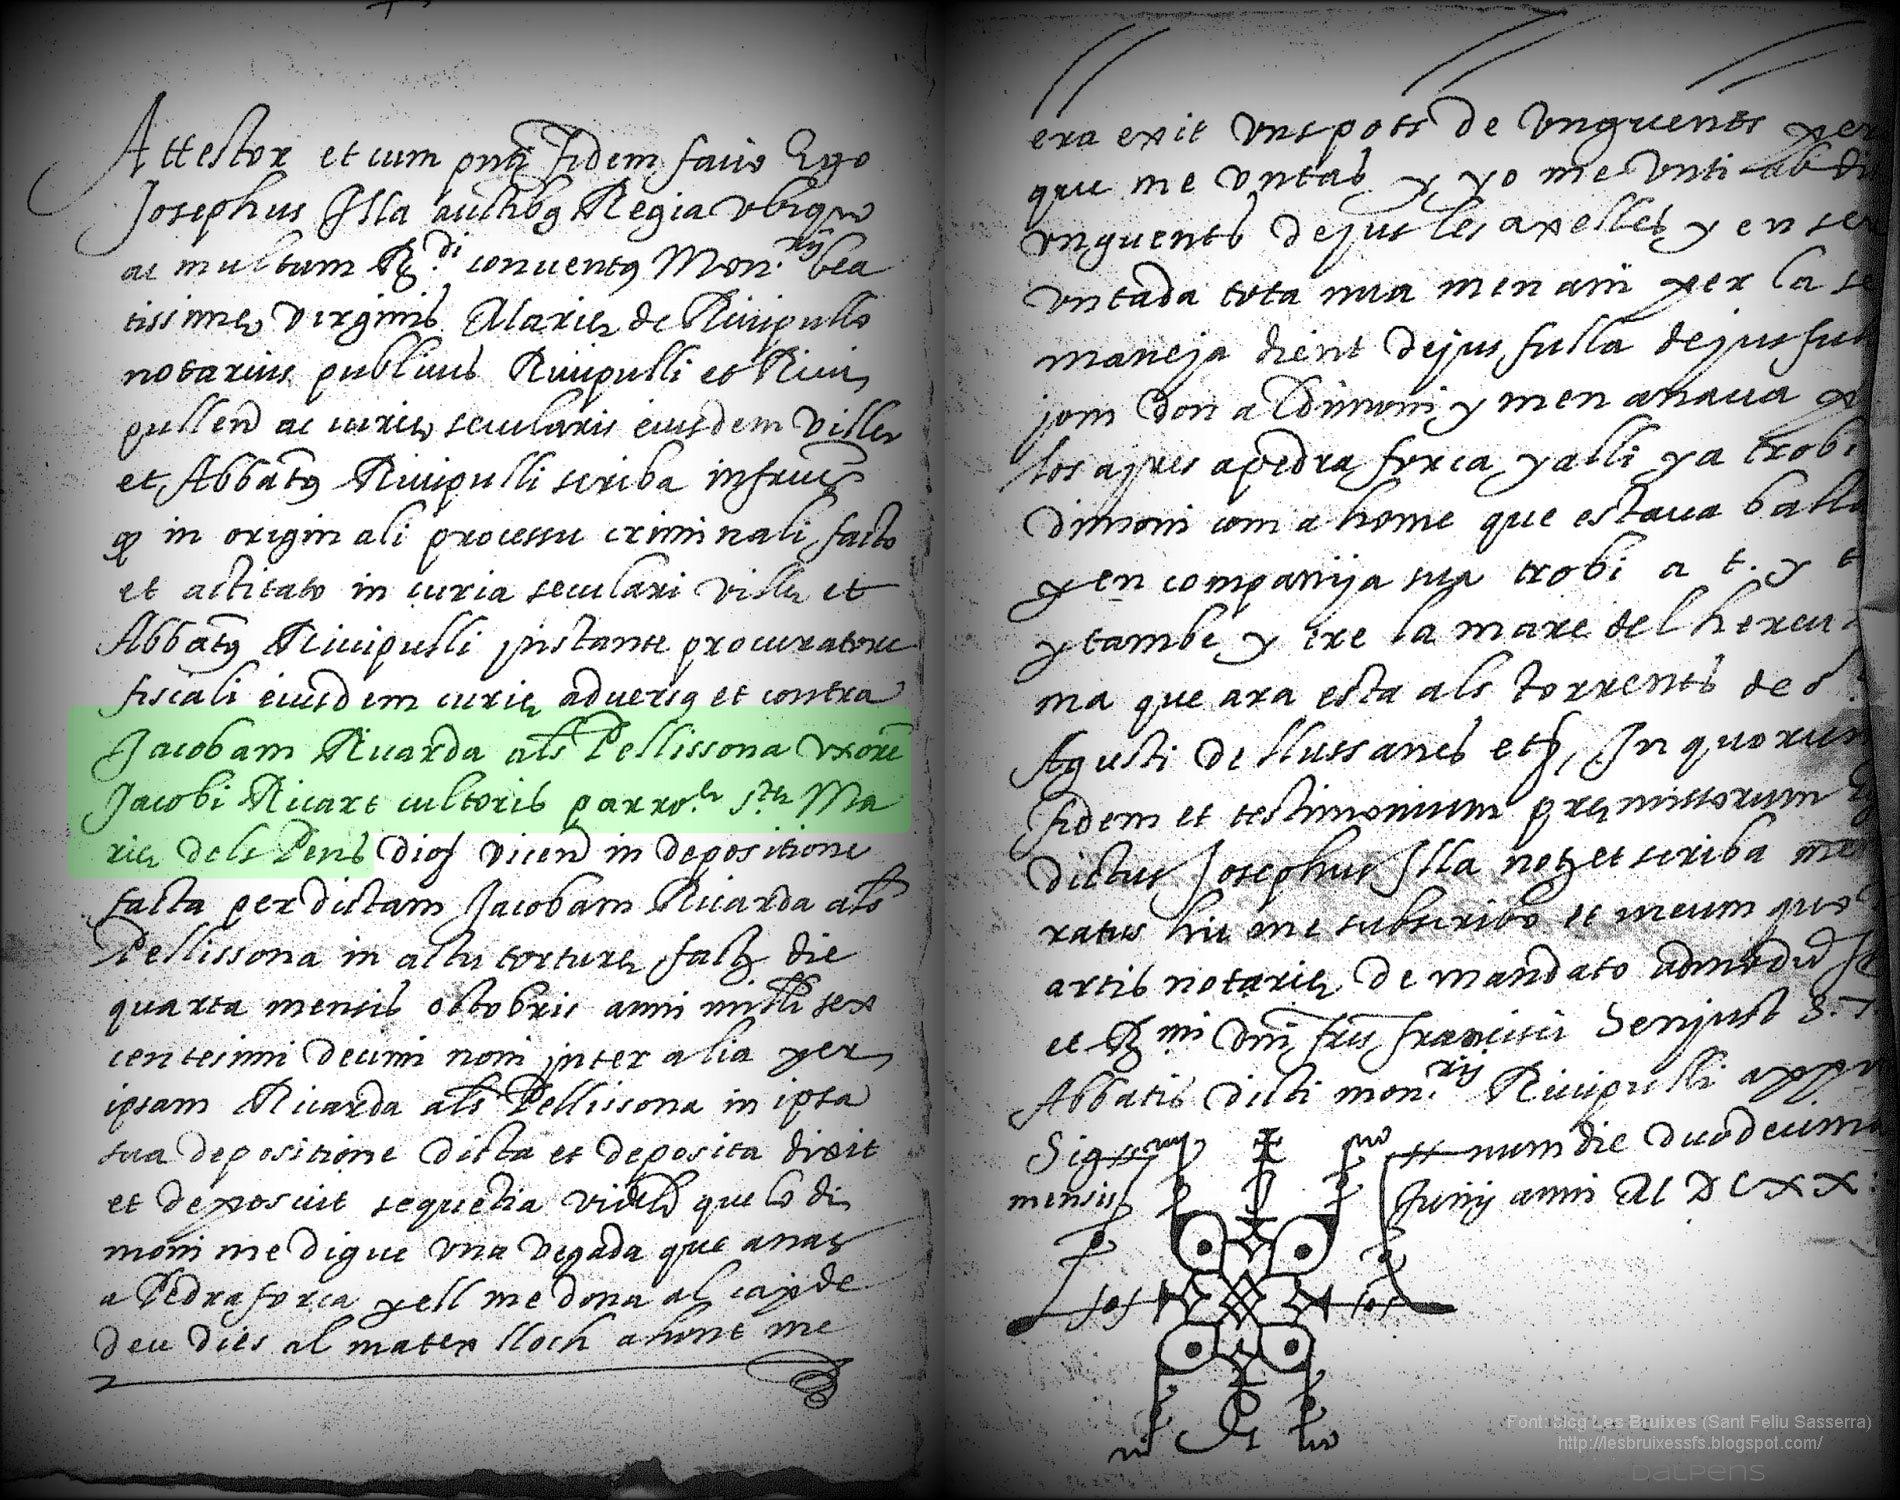 Attestor et cum pnti fidem facio Ego
Josephus Illa auctibq Regia vbiqȝ
ac multum R.di conventq Mon.rij bea
tissime virginis Marie de Rivipullo
notarius publicus Rivipulli et Rivi
pullen ac curie secularis eiusdem ville
et Abbatq Rivipulli scriba infrus
qȝ in originali processu criminali facto
et actitato in curia seculari ville et
Abbatq Rivipulli jnstante procuratore
fiscali eiusdem curie adversq et contra
Jacobam Ricarda als Pellissona vxore
Jacobi Ricart cultoris parro.le S.te Ma
rie dels Pens dios vicen in depositione
facta per dictam Jacobam Ricarda als
Pellissona in actu torture fact die
quarta mensis octobris anni milli sex
centesimi decimi noni jnter alia per
ipsam Ricarda als Pellissona in ipsa
sua depositione dicta et deposita dixit
et deposuit sequetia videlt que lo di
moni me digue vna vegada que anas
a Pedraforca y ell me dona al cap de
deu dies al matex lloch ahont me
era exit vns pots de vnguents per
que me vntas y yo me vnti ab
vnguents dejus les axelles y en ser
vntada tota nua men ani per la
maneja dient dejus fulla dejus
jom don al dimoni y men anava
los ajres a pedra forca y alli ya trobi
dimoni com a home que estava
y en companyia sua trobi a t. y t
y tambe y ere la mare del
ma que ara esta als torrents de S.
Agusti de llussanes etc, In quorum
fidem et testimonium premissorum
dictus Josephus Illa not et scriba
ratus hic me subscribo et meum quo
artis notarie de mandato admodu
et R.mi Dni fris francisci Senjust S.T
Abbatis dicti mon.rij Rivipulli
Sig num die duodecima
mensis Junij anni M D C X X
Font: blog Les Bruixes (Sant Feliu Sasserra)
http://lesbruixessfs.blogspot.com/
DalPens